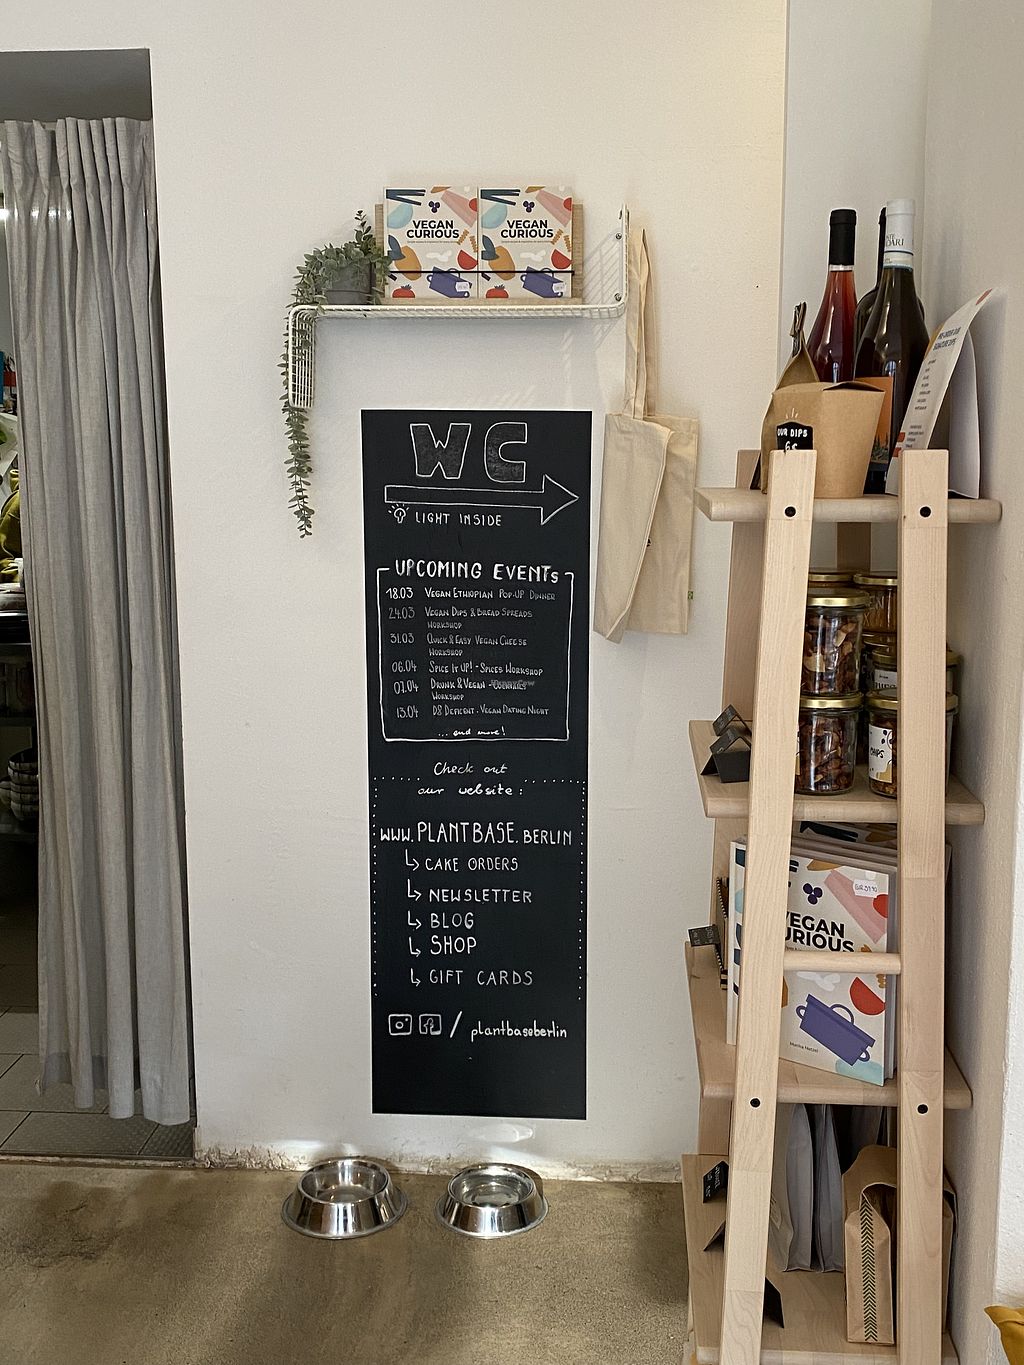 VEGAN
CURIOUS
VEGAN
CURIOUS
WC
LIGHT INSIDE
UPCOMING EVENTS
18.03 VEGAN ETHIOPIAN POP-UP DINNER
24.03 VEGAN DIPS & BREAD SPREADS
WORKSHOP
31.03 QUICK & EASY VEGAN CHEESE
WORKSHOP
06.04 SPICE IT UP! - SPICES WORKSHOP
07.04 DRUNK & VEGAN -
WORKSHOP
13.04 VEGAN DATING NIGHT
... and more!
Check out
our website:
www.PLANTBASE.BERLIN
↳ CAKE ORDERS
↳ NEWSLETTER
↳ BLOG
↳ SHOP
↳ GIFT CARDS
/ plantbaseberlin
OUR DIPS
6€
CHIPS
VEGAN
URIOUS